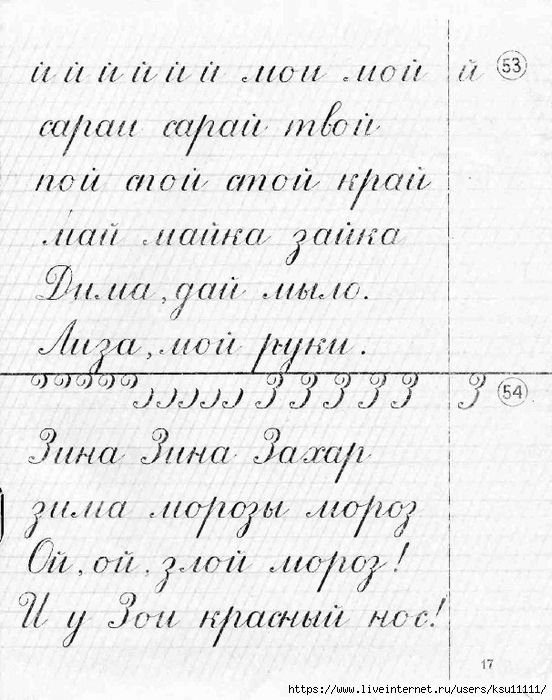 й й й й й й мои мой й 53
сараи сарай твой
пой спой стой край
май майка зайка
Дима, дай мыло.
Лиза, мой руки.
З З З З З З 54
Зина Зина Захар
зима морозы мороз
Ой, ой, злой мороз!
И у Зои красный нос!
17
https://www.liveinternet.ru/users/ksu11111/